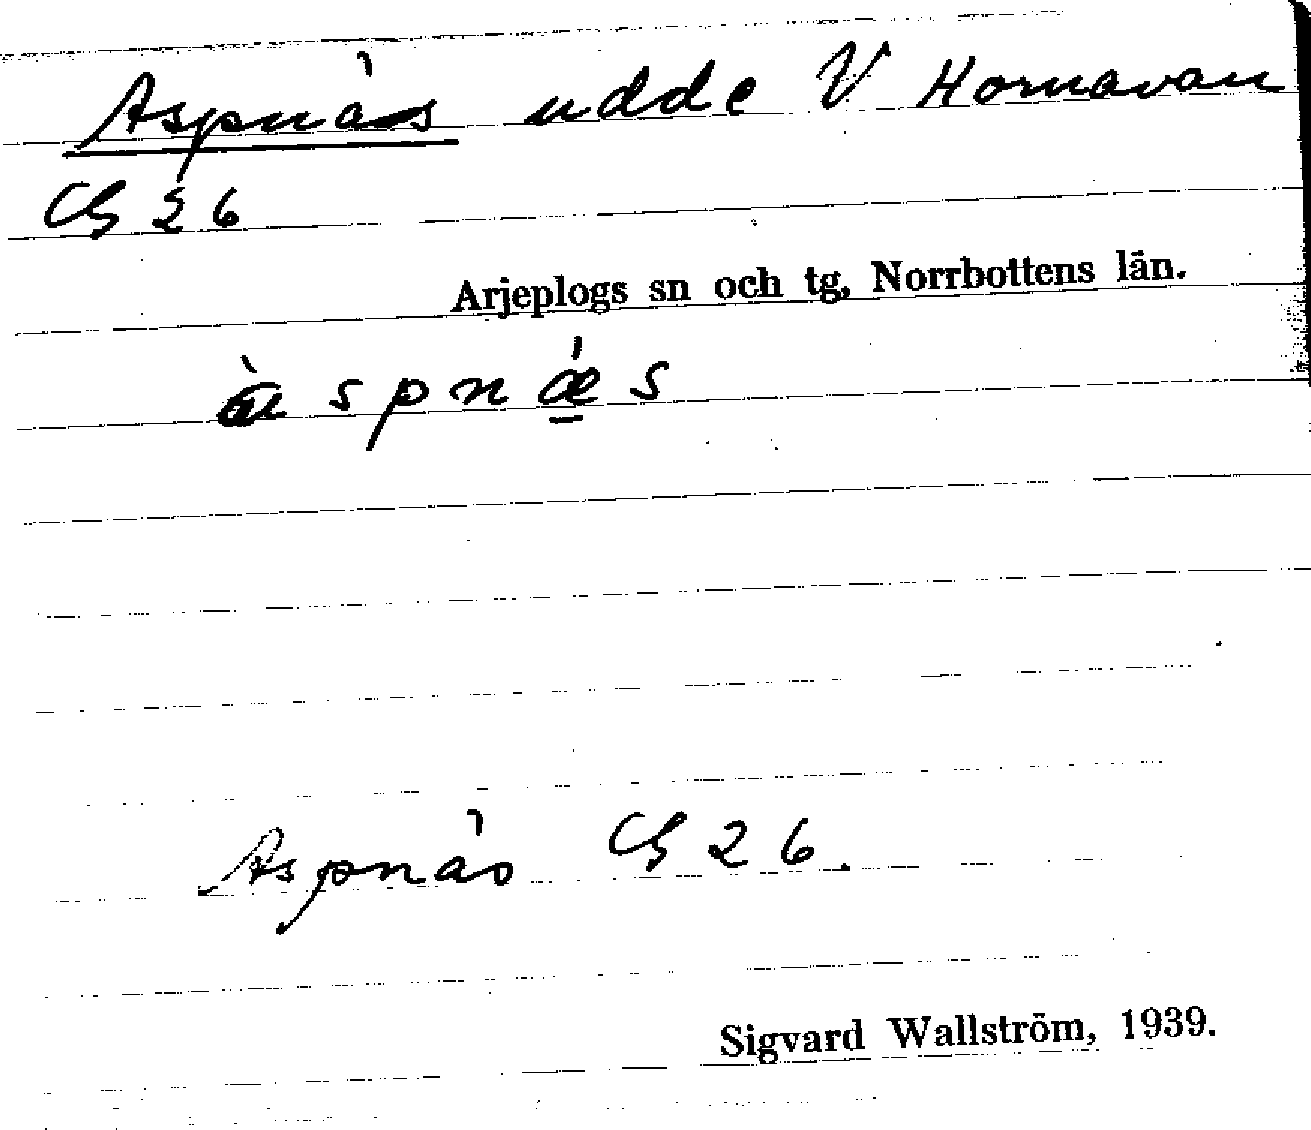 Aspnäs udde V Hornavan
CG 26
Arjeplogs sn och tg, Norrbottens län.
æ̀ s p n ǽ̱ s
Aspnäs CG 26.
Sigvard Wallström, 1939.